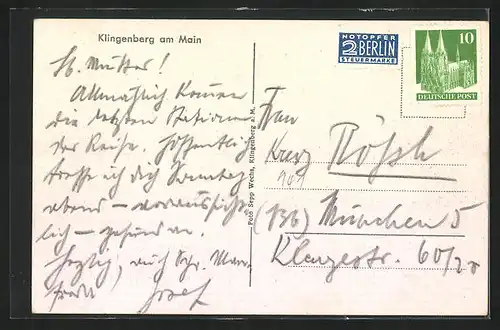 Klingenberg am Main
NOTOPFER
2 BERLIN
STEUERMARKE
10
DEUTSCHE POST
Lb. Mutter!
Allmählich kommen
die letzten Stationen
der Reise. Hoffentlich
treffe ich dich Sonntag
abend – voraussicht-
lich – gesund an.
Herzlig, auch
Josef
Foto Sepp Wecht, Klingenberg a. M.
Frau
Rösch
(13b) München 5
Klenzestr. 60/